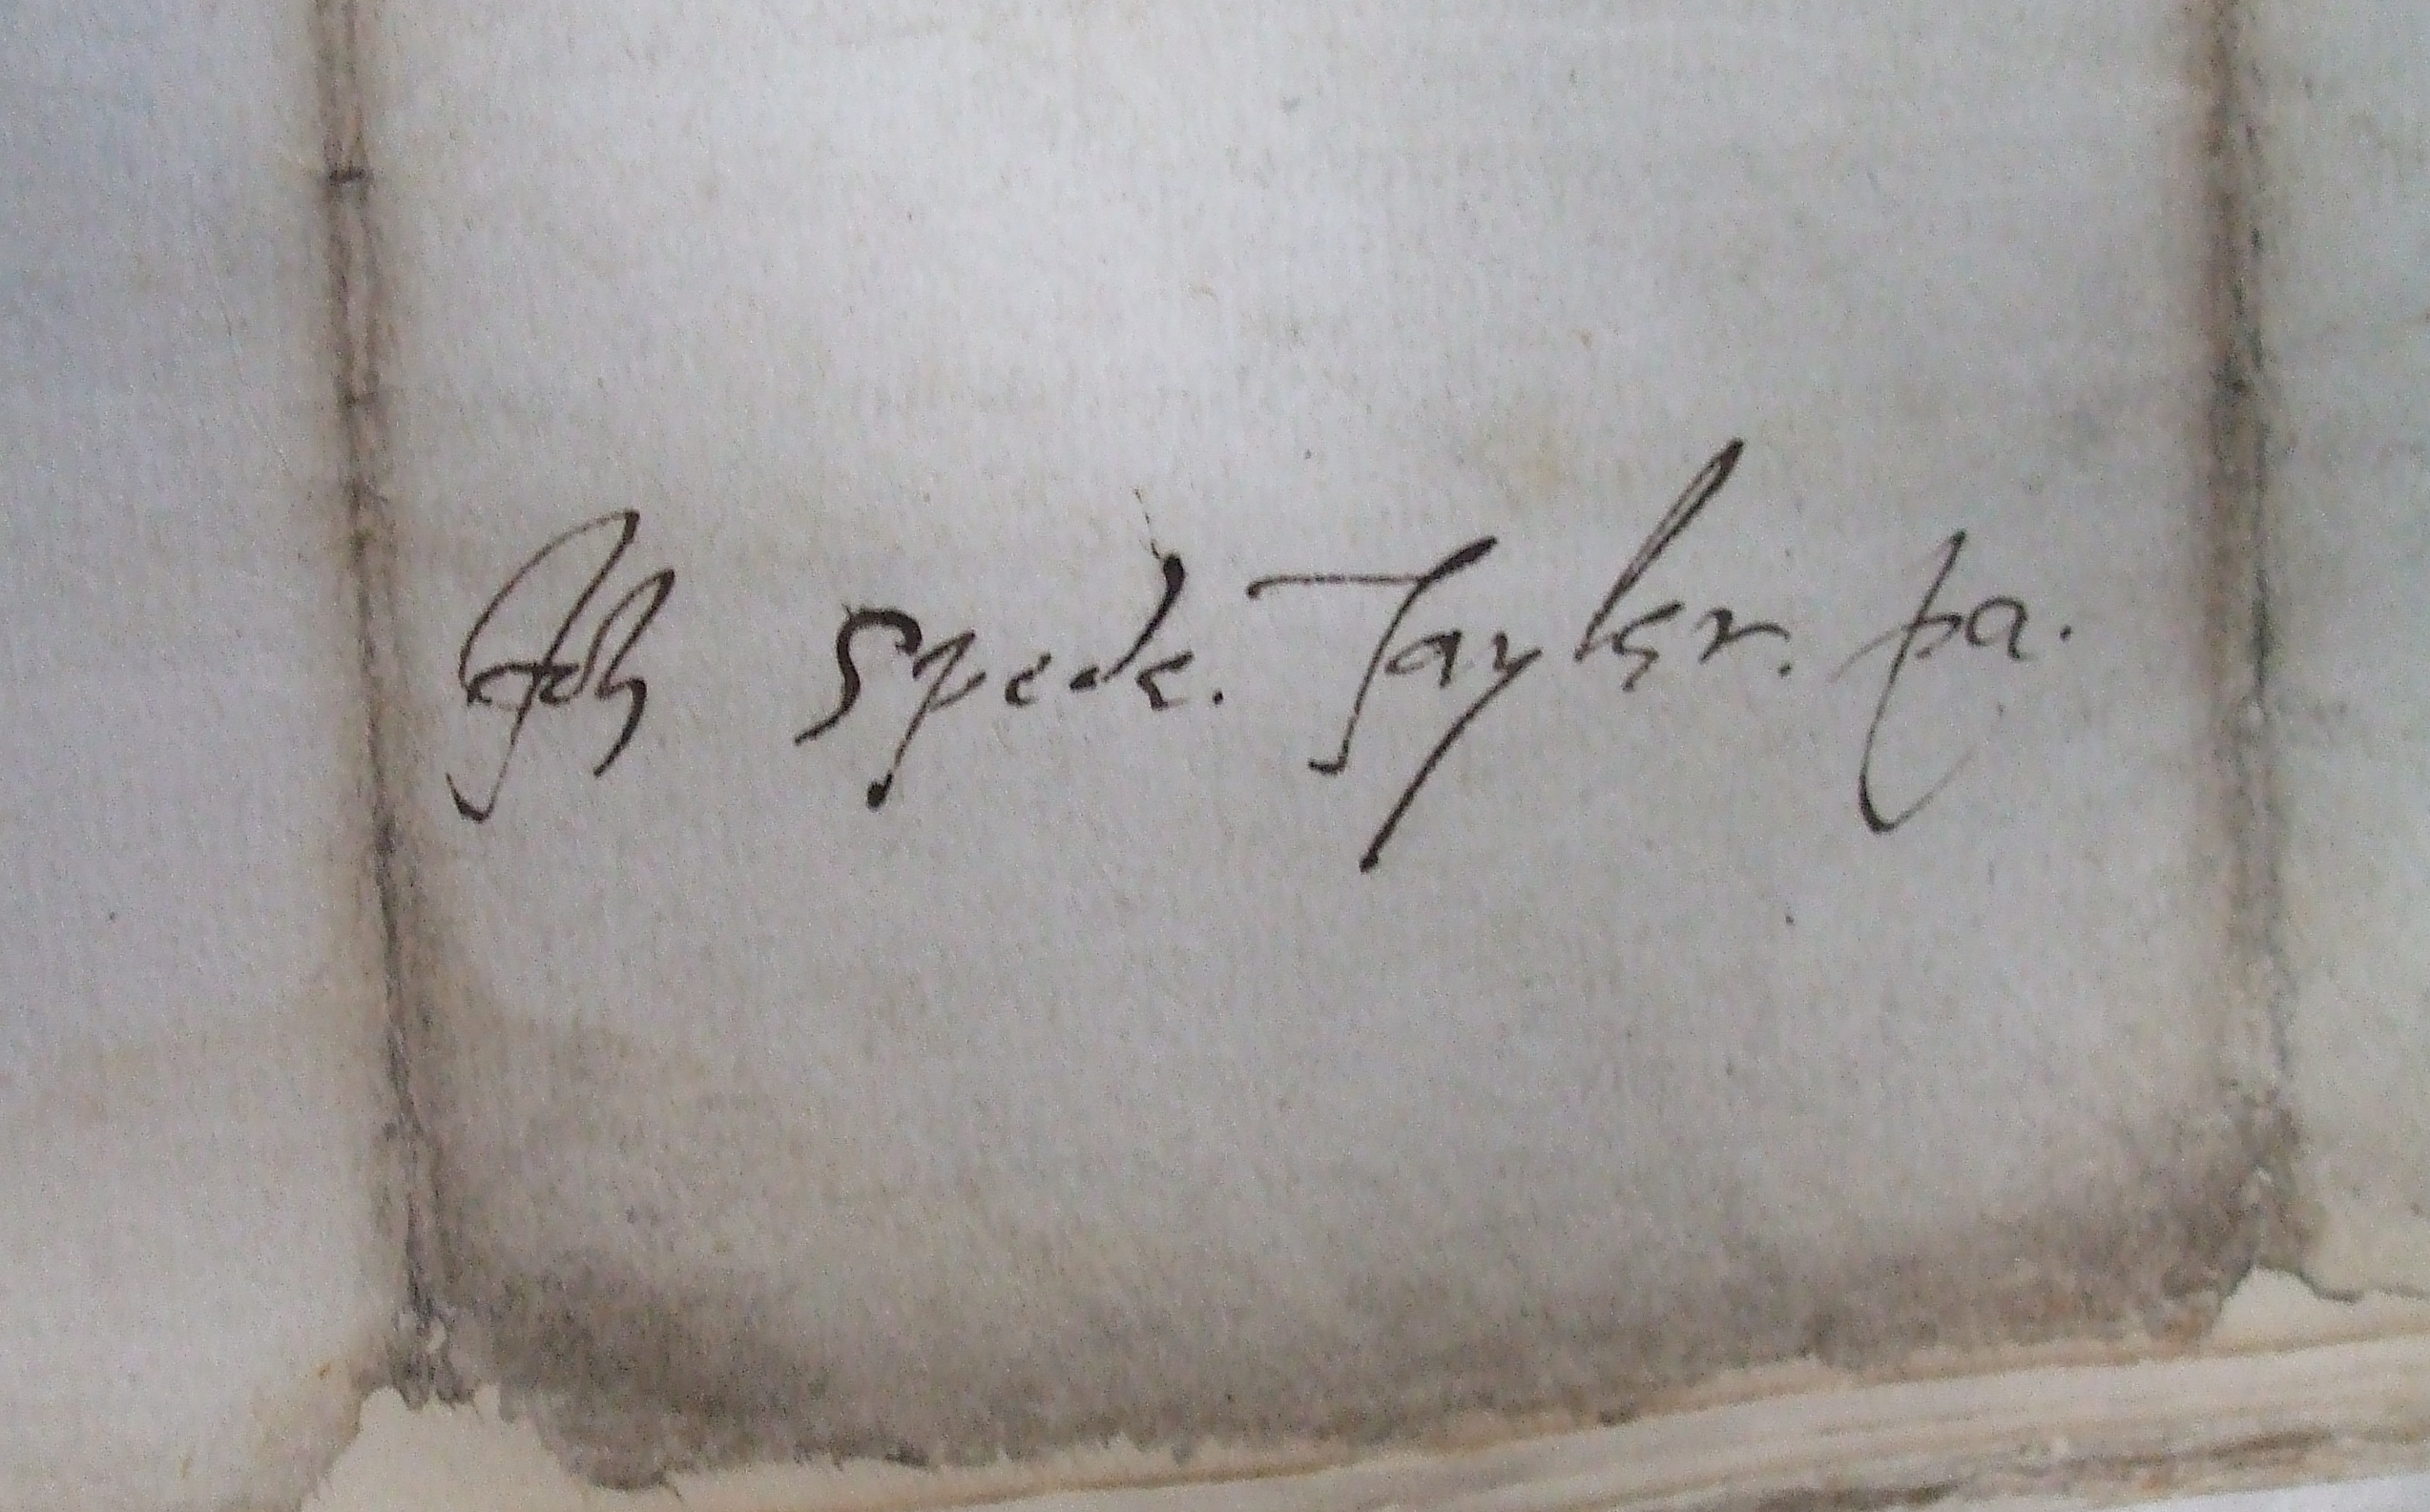 Joh Spede. Tayler. pa.